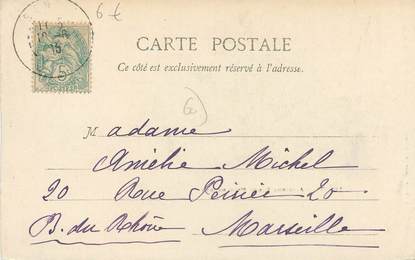 6 €
CARTE POSTALE
Ce côté est exclusivement réservé à l'adresse.
Madame
Amélie Michel
20 Rue 20
B. du Rhône Marseille